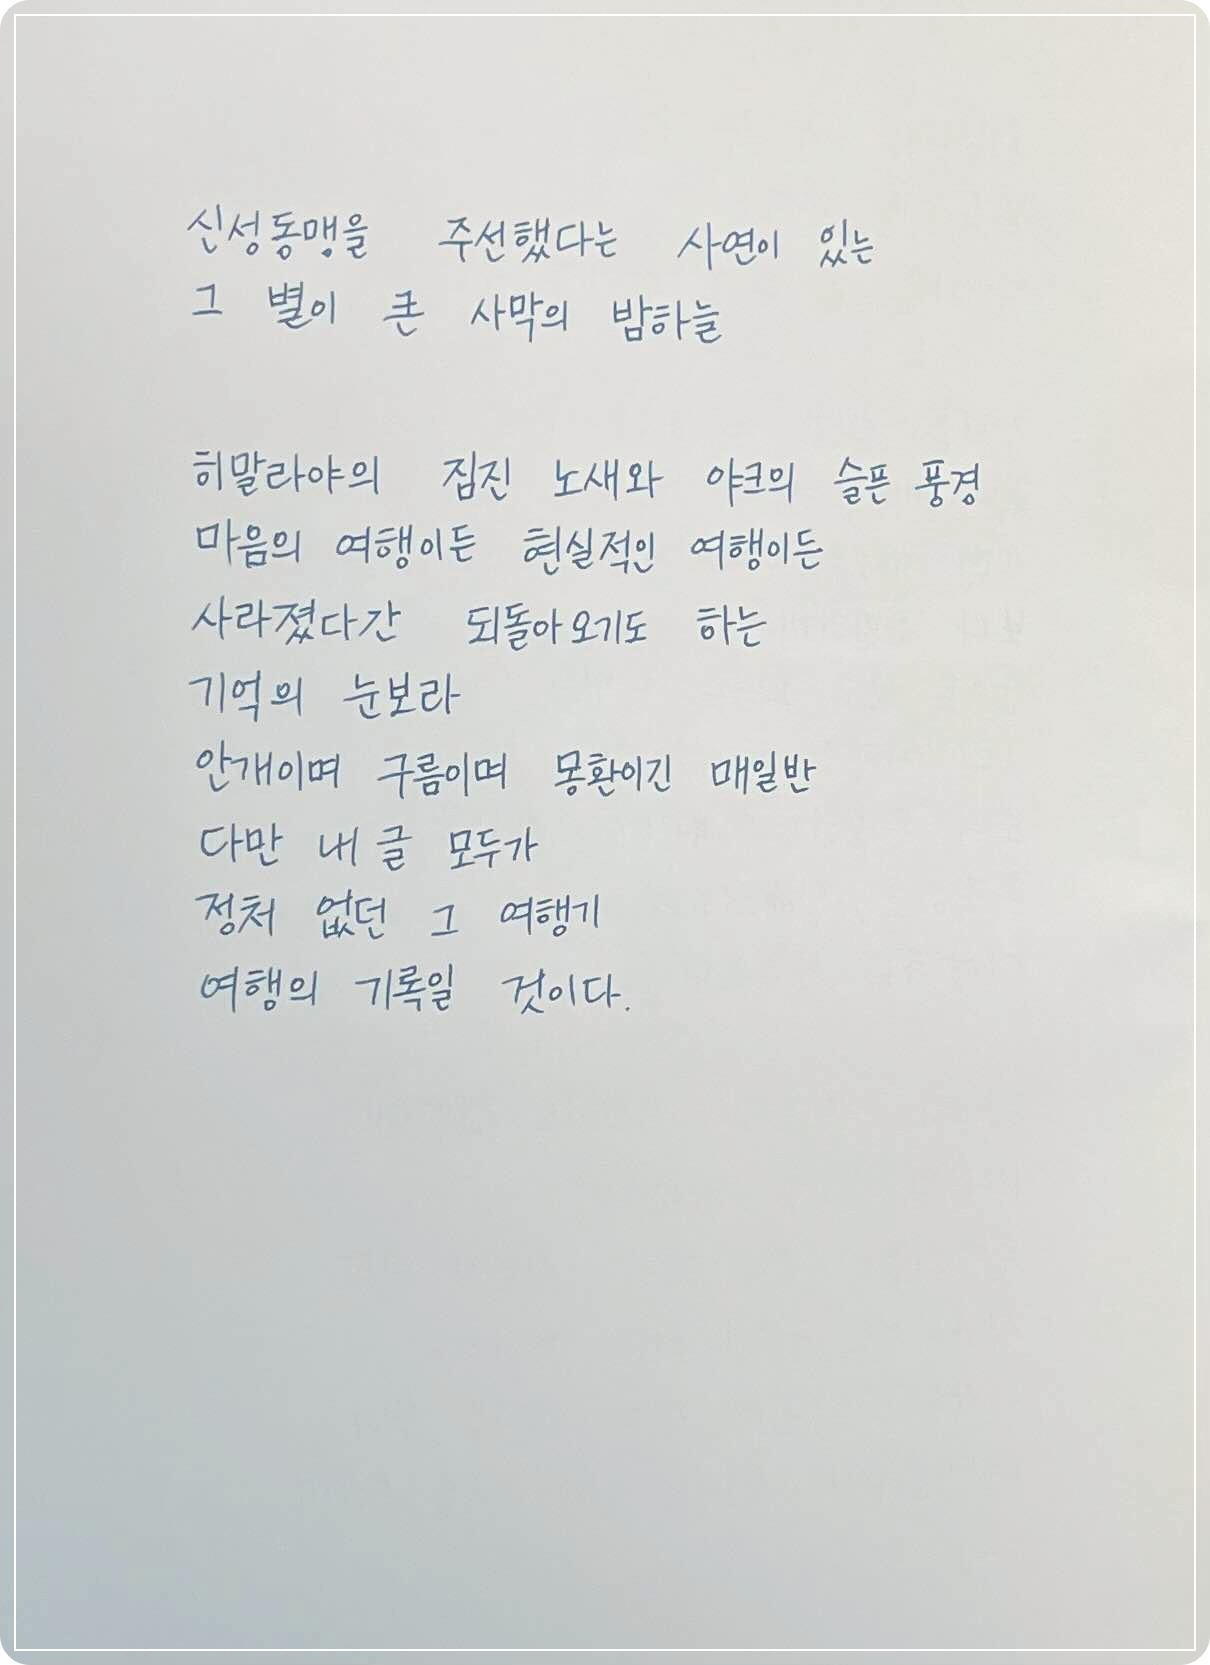 신성동맹을 주선했다는 사연이 있는
그 별이 큰 사막의 밤하늘
히말라야의 짐진 노새와 야크의 슬픈 풍경
마음의 여행이든 현실적인 여행이든
사라졌다간 되돌아 오기도 하는
기억의 눈보라
안개이며 구름이며 몽환이긴 매일반
다만 내 글 모두가
정처 없던 그 여행기
여행의 기록일 것이다.